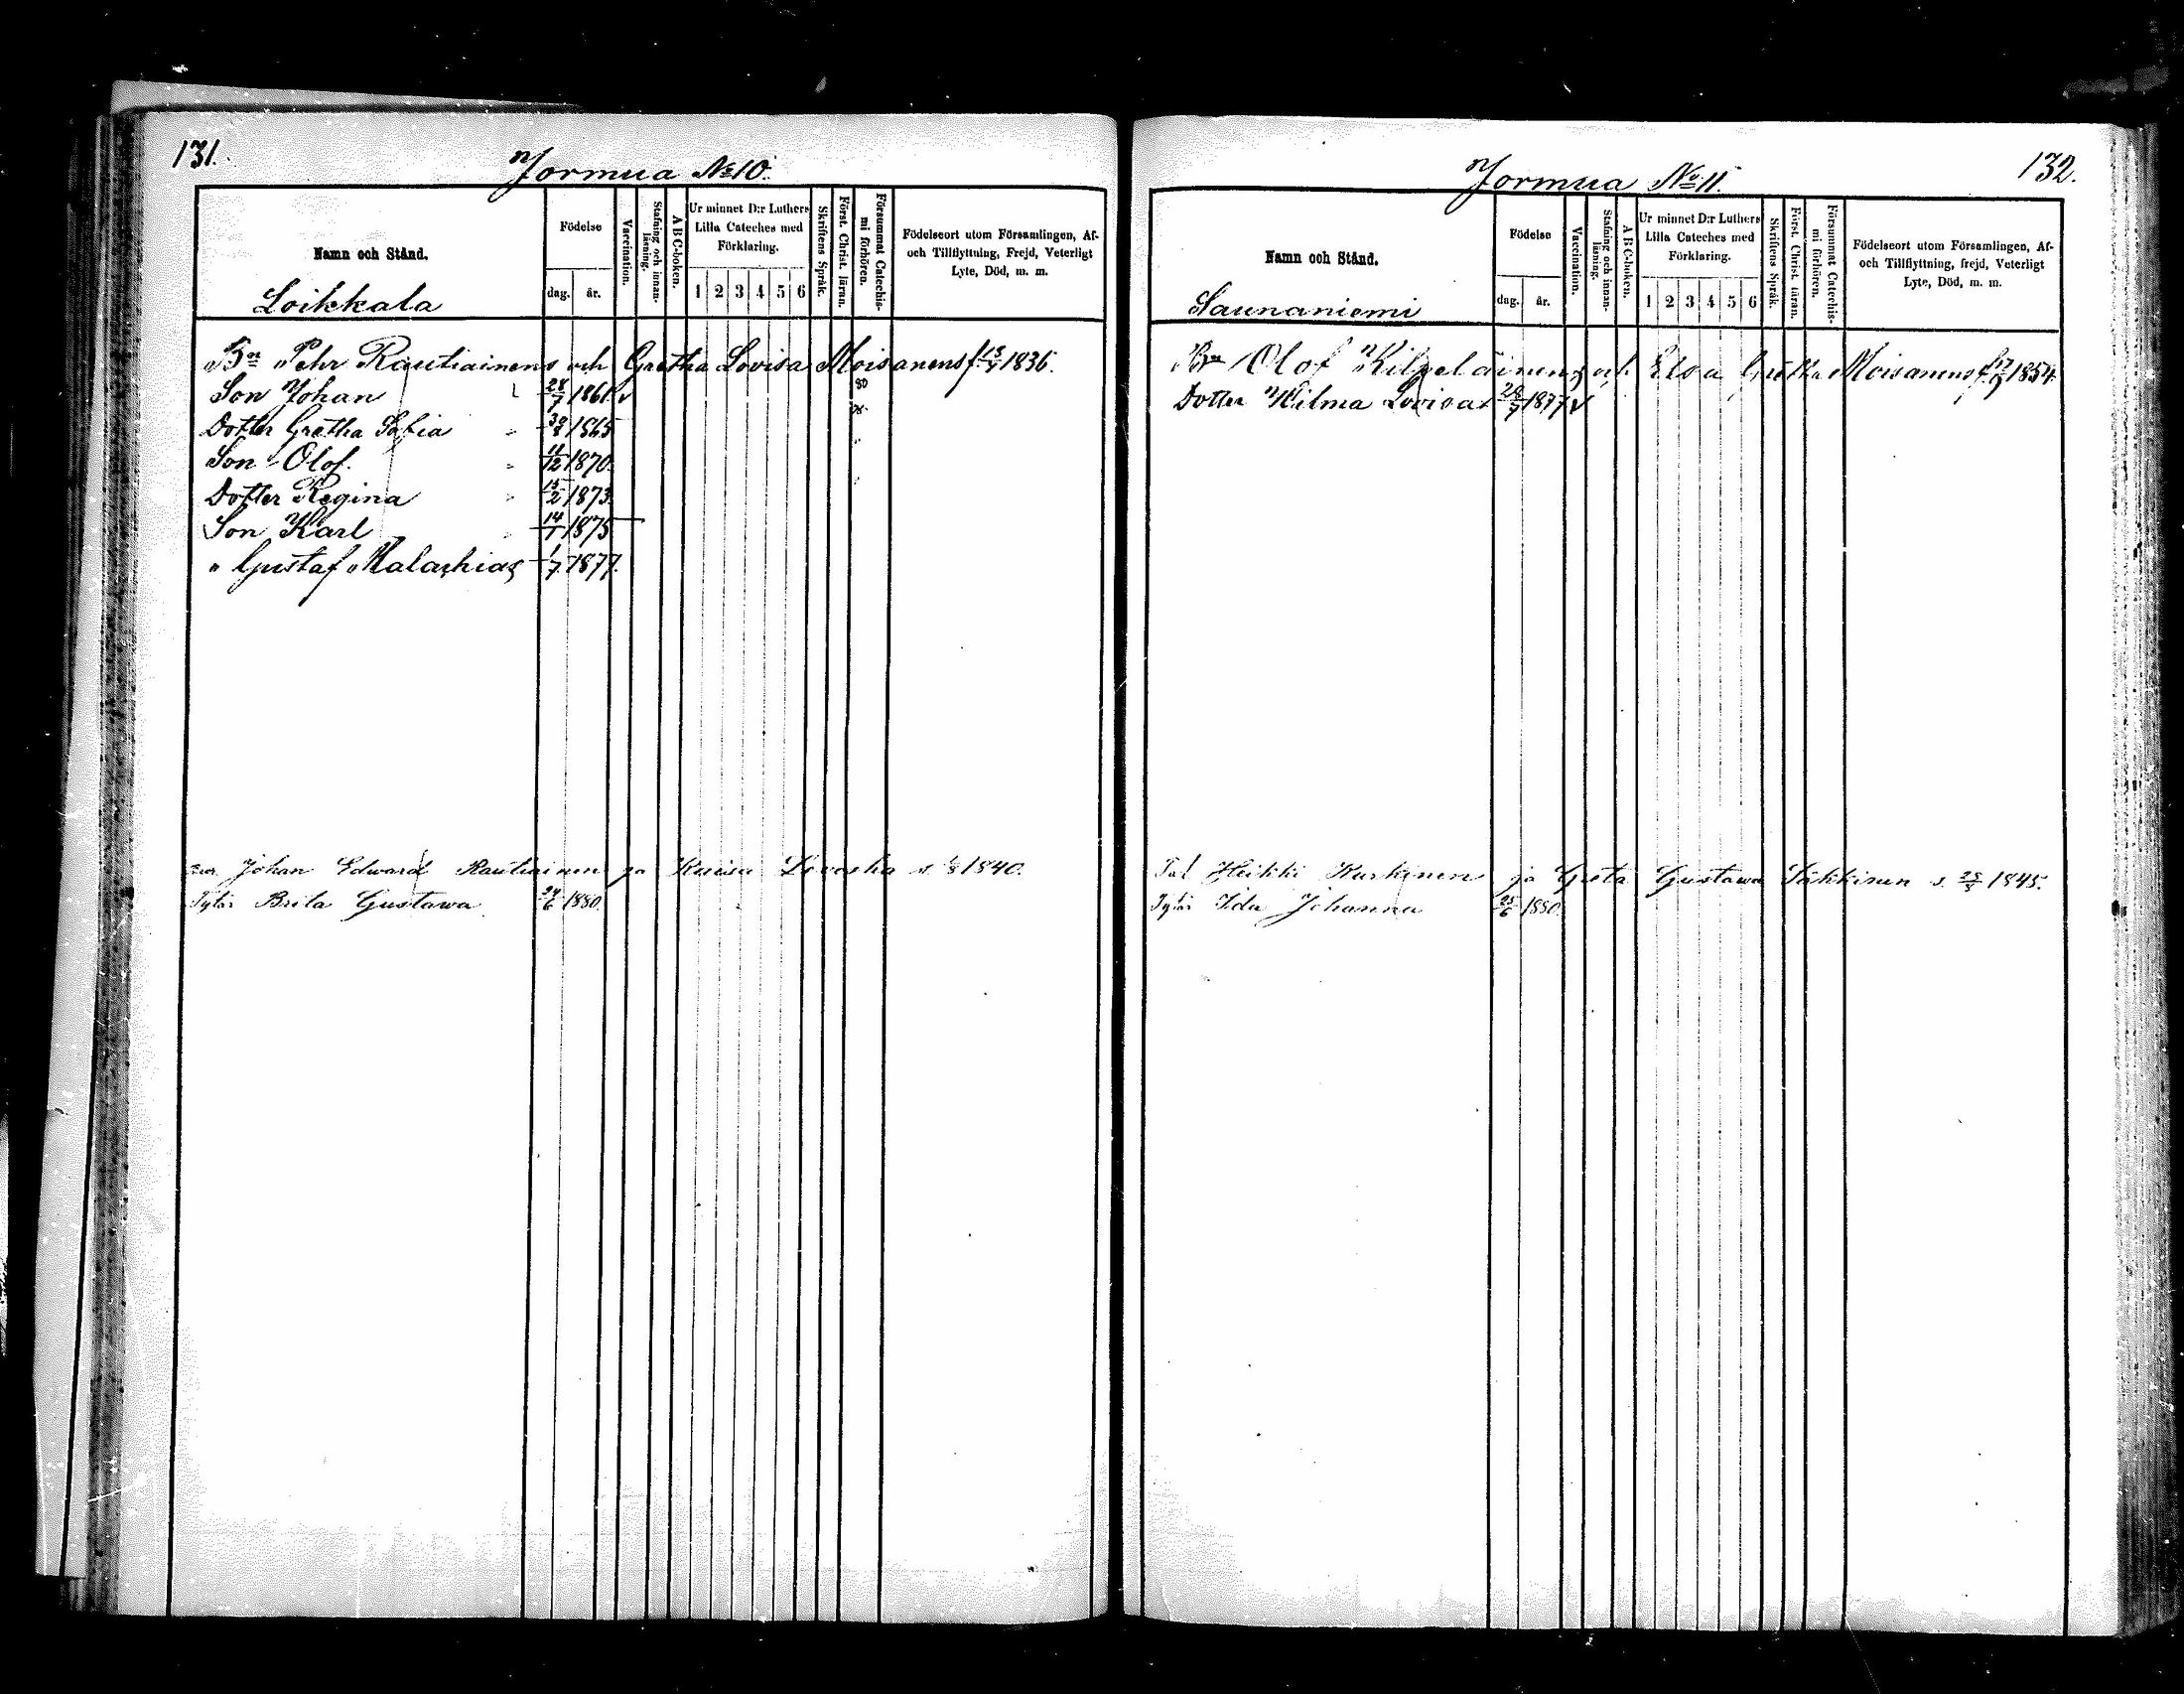 131.
Jormua No 10.
Namn och Stånd.
Loikkala
Födelse
dag. år.
Vaccination.
Stafning och innanläsning.
A B C-boken.
Ur minnet D:r Luthers Lilla Cateches med Förklaring.
1 2 3 4 5 6
Skriftens Språk.
Först. Christ. läran.
Försummat Catechismi förhören.
Födelseort utom Församlingen, Af- och Tillflyttning, Frejd, Veterligt Lyte, Död, m. m.
Bn Pehr Rautiainens och Gretha Lovisa Moisanens f. 1836.
Son Johan 28/7 1861
Dotter Gretha Sofia 30/8 1865
Son Olof. 11/12 1870.
Dotter Regina 15/2 1873.
Son Karl 14/1 1875
" Gustaf Malachias 1/7 1877.
Johan Edward Rautiainen ja Kaisa Lovisa s. 1840.
Tytär Brita Gustawa 24/6 1880.
132.
Jormua No 11.
Namn och Stånd.
Saunaniemi
Födelse
dag. år.
Vaccination.
Stafning och innanläsning.
A B C-boken.
Ur minnet D:r Luthers Lilla Cateches med Förklaring.
1 2 3 4 5 6
Skriftens Språk.
Först. Christ. läran.
Försummat Catechismi förhören.
Födelseort utom Församlingen, Af- och Tillflyttning, frejd, Veterligt Lyte, Död, m. m.
Bn Olof Kilpeläinens och Elsa Gretha Moisanens f. 17/9 1854.
Dotter Hilma Lovisa 28/7 1877
Tal Heikki Kurkinen ja Greta Gustawa Säkkinen s. 1845.
Tytär Ida Johanna 25/6 1880.